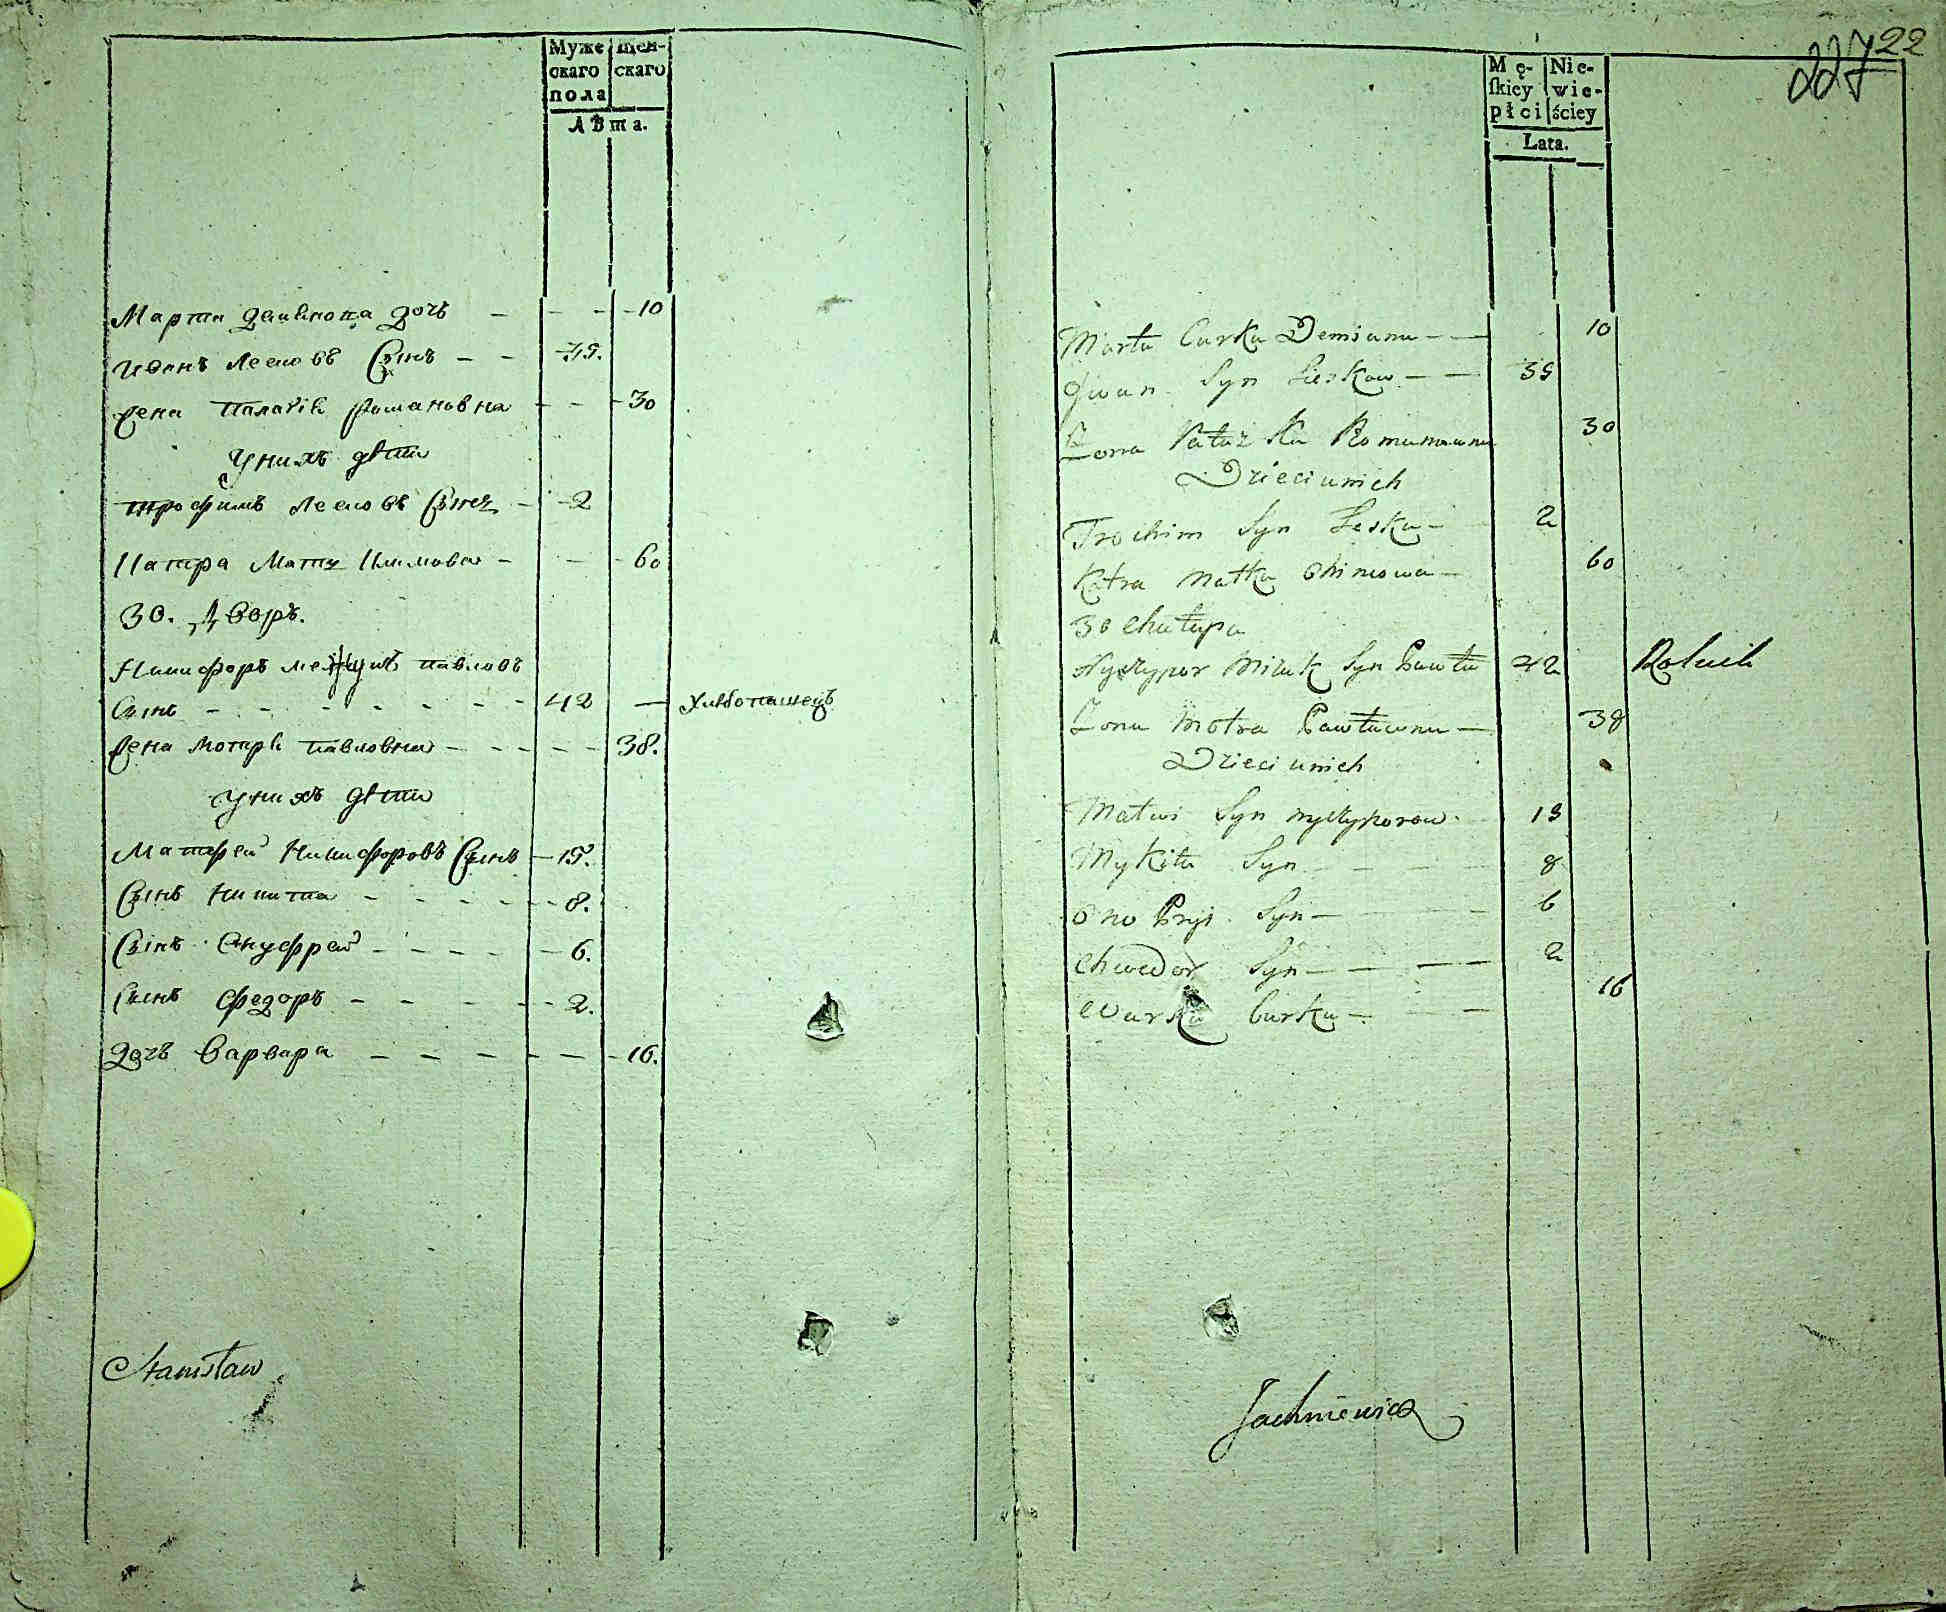 Муже
скаго
пола
Жен-
скаго
Лѣта.
Марта Демянова дочь - - - 10
Иванъ Лесковъ Сынъ - - 35.
Жена Палагѣя Романовна - - 30
Унихъ дѣти
Трофимъ Лесковъ Сынъ - 2
Катра Мать Климова - - 60
30. Дворъ.
Никифоръ павловъ
Сынъ - - - - - - - 42 — Хлѣбопашецъ
Жена Мотря павловна - - - - 38.
Унихъ дѣти
Матфей Никифоровъ Сынъ - 15.
Сынъ Никита - - - - - 8.
Сынъ Онуфрей - - - - 6.
Сынъ Федоръ - - - - - 2.
Дочь Варвара - - - - - - 16.
Stanisław
22
227
Mę-
skiey
płci
Nie-
wie-
ściey
Lata.
Marta Curka Demiana - - 10
Jwan Syn Leskow - - 35
Żona Romanowna 30
Dzieci unich
Trochim Syn Leska - 2
Katra Matka Chimowa - 60
30 Chałupa
Nyczypor Miluk Syn Pawła 42 Rolnik
Żona Motra Pawławna - 38
Dzieci unich
Matwi Syn nyczyporow - 15
Mykita Syn - - - 8
Onopryi Syn - - - 6
Chwedor Syn - - - 2
Warka Curka - - - 16
Jachniewicz